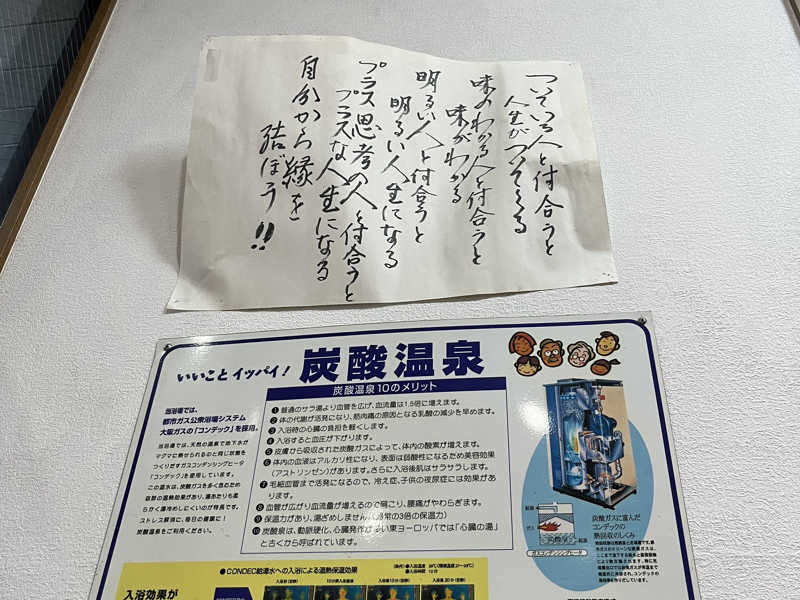 ついている人と付合うと
人生がついてくる
味のわかる人と付合うと
味がわかる
明るい人と付合うと
明るい人生になる
プラス思考の人と付合うと
プラスな人生になる
自分から縁を
結ぼう!!
いいこと イッパイ!
炭酸温泉
当浴場では、
都市ガス公衆浴場システム
大阪ガスの「コンデック」を採用。
当浴場では、天然の温泉で地下水が
マグマに熱せられるのと同じ状態を
つくりだすガスコンデンシングヒータ
「コンデック」を使用しています。
この温水は、炭酸ガスを多く含むため
抜群の温熱効果があり、湯あたりも柔
らかく湯冷めしにくいのが特長です。
ストレス解消に、毎日の健康に!
炭酸温泉をご利用ください。
炭酸温泉10のメリット
❶ 普通のサラ湯より血管を広げ、血流量は1.5倍に増えます。
❷ 体の代謝が活発になり、筋肉痛の原因となる乳酸の減少を早めます。
❸ 入浴時の心臓の負担を軽くします。
❹ 入浴すると血圧が下がります。
❺ 皮膚から吸収された炭酸ガスによって、体内の酸素が増えます。
❻ 体内の血液はアルカリ性になり、表面は弱酸性になるため美容効果
(アストリンゼン)があります。さらに入浴後肌はサラサラします。
❼ 毛細血管まで活発になるので、冷え症、子供の夜尿症には効果があ
ります。
❽ 血管が広がり血流量が増えるので肩こり、腰痛がやわらぎます。
❾ 保温力があり、湯ざめしません。(通常の3倍の保温力)
❿ 炭酸泉は、動脈硬化、心臓発作が多い東ヨーロッパでは「心臓の湯」
と古くから呼ばれています。
給湯
ガス
炭酸ガス
給水
ガスコンデンシングヒータ
炭酸ガスに富んだ
コンデックの
熱回収のしくみ
●CONDEC給湯水への入浴による温熱保温効果
入浴効果が
入浴前(安静)
10分間入浴直後
入浴後10分(安静)
入浴後20分(安静)